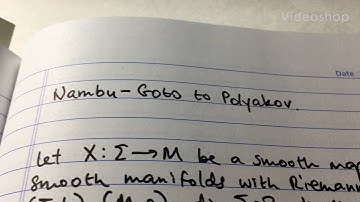 Videoshop
Date
Nambu-Goto to Polyakov.
Let X: Σ → M be a smooth map
smooth manifolds with Riemann